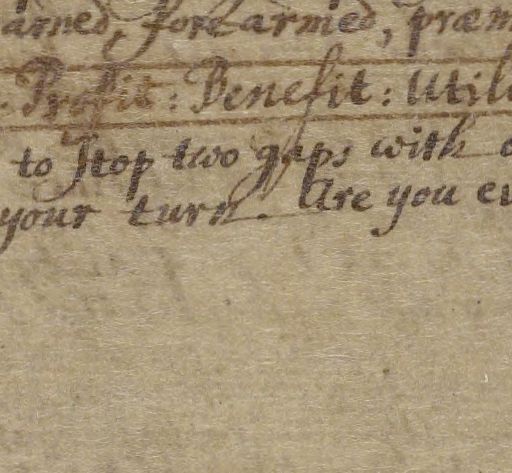 armed, fore armed, præm
. Profit: Benefit: Utili
to stop two gaps with
your turn. Are you ev